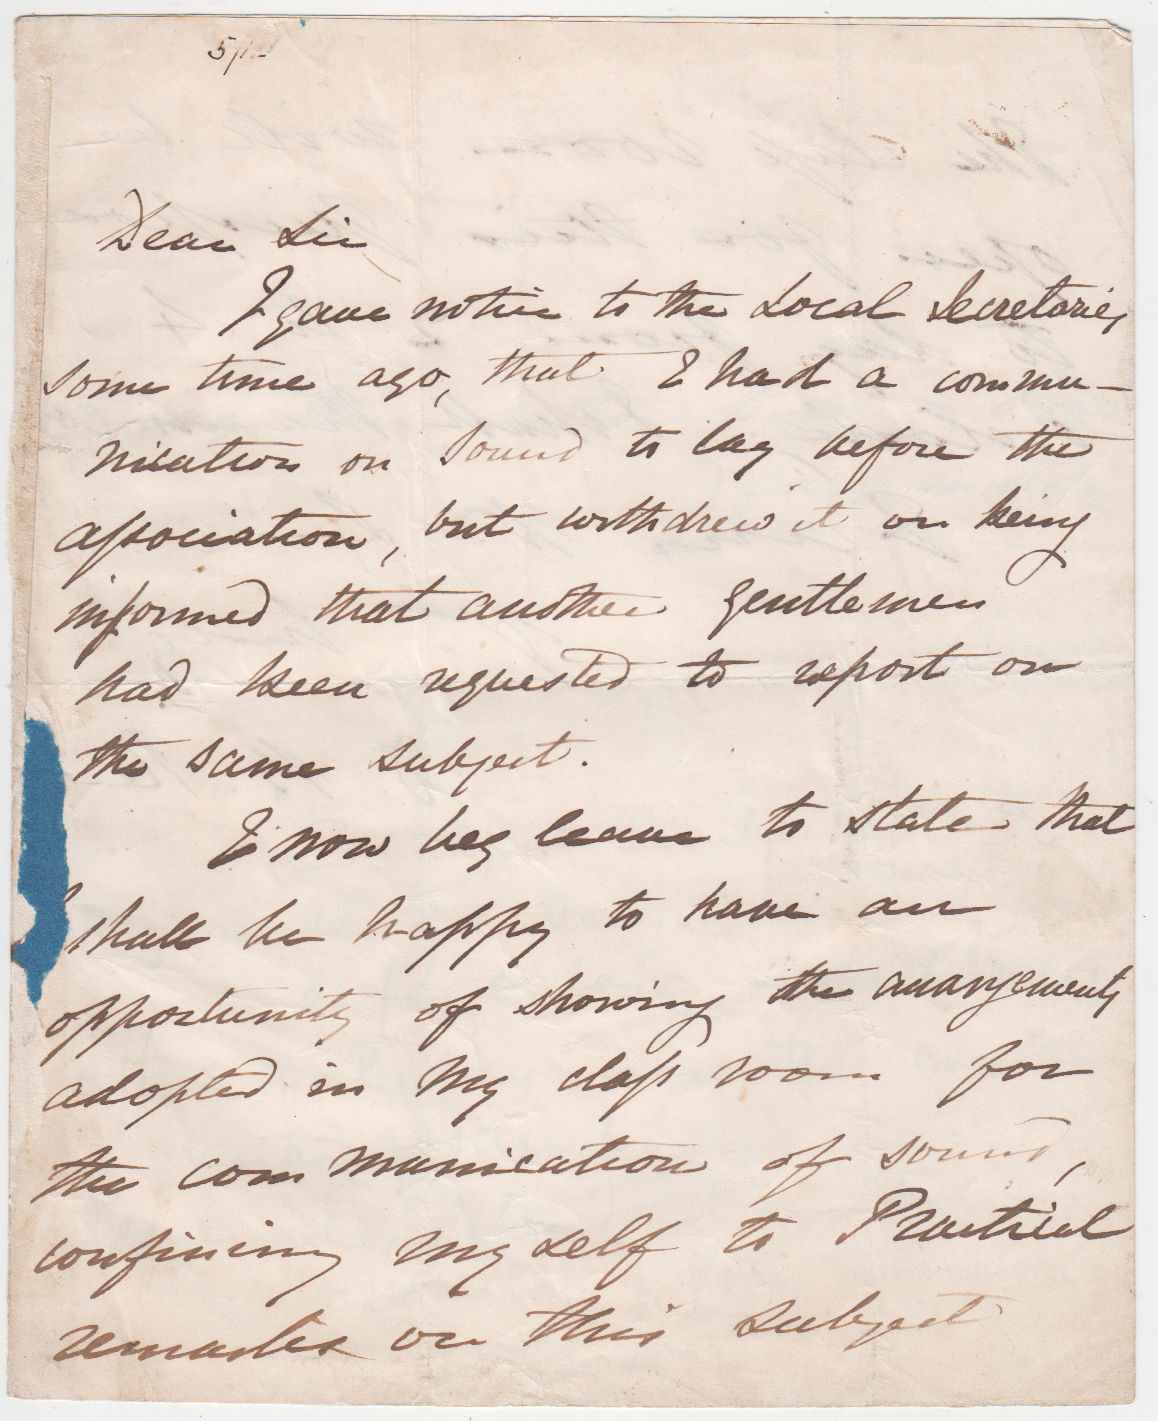 Dear Sir
I gave notice to the Local Secretaries
some time ago, that I had a commu-
nication on Sound to lay before the
association, but withdrew it on being
informed that another gentlemen
had been requested to report on
the same subject.
I now beg leave to state that
I shall be happy to have an
opportunity of showing the arrangements
adopted in my class room for
the communication of sound,
confining myself to Practical
remarks on this subject